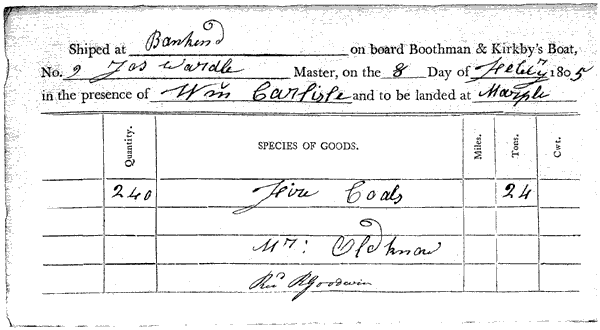 Shiped at Bankend on board Boothman & Kirkby's Boat,
No. 9 Jas Wardle Master, on the 8 Day of Febry 1805
in the presence of Wm Carlisle and to be landed at Marple
Quantity. SPECIES OF GOODS. Miles. Tons. Cwt.
240 Fire Coals 24
Mr: Oldknow
Recd R Goodwin